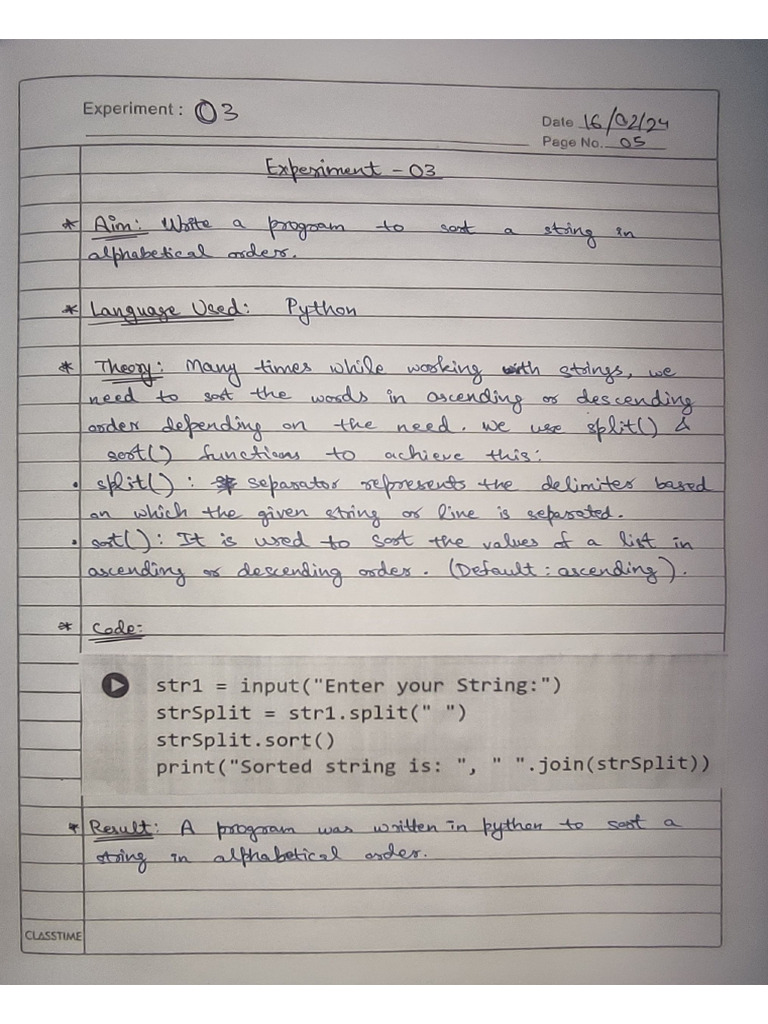 Experiment : 03
Date 16/02/24
Page No. 05
Experiment - 03
* Aim: Write a program to sort a string in
alphabetical orders.
* Language Used: Python
* Theory: Many times while working with strings, we
need to sort the words in ascending or descending
order depending on the need. We use split() &
sort() functions to achieve this:
• split() : separator represents the delimiter based
on which the given string or line is separated.
• sort() : It is used to sort the values of a list in
ascending or descending order. (Default : ascending).
* Code:
str1 = input("Enter your String:")
strSplit = str1.split(" ")
strSplit.sort()
print("Sorted string is: ", " ".join(strSplit))
* Result: A program was written in python to sort a
string in alphabetical order.
CLASSTIME